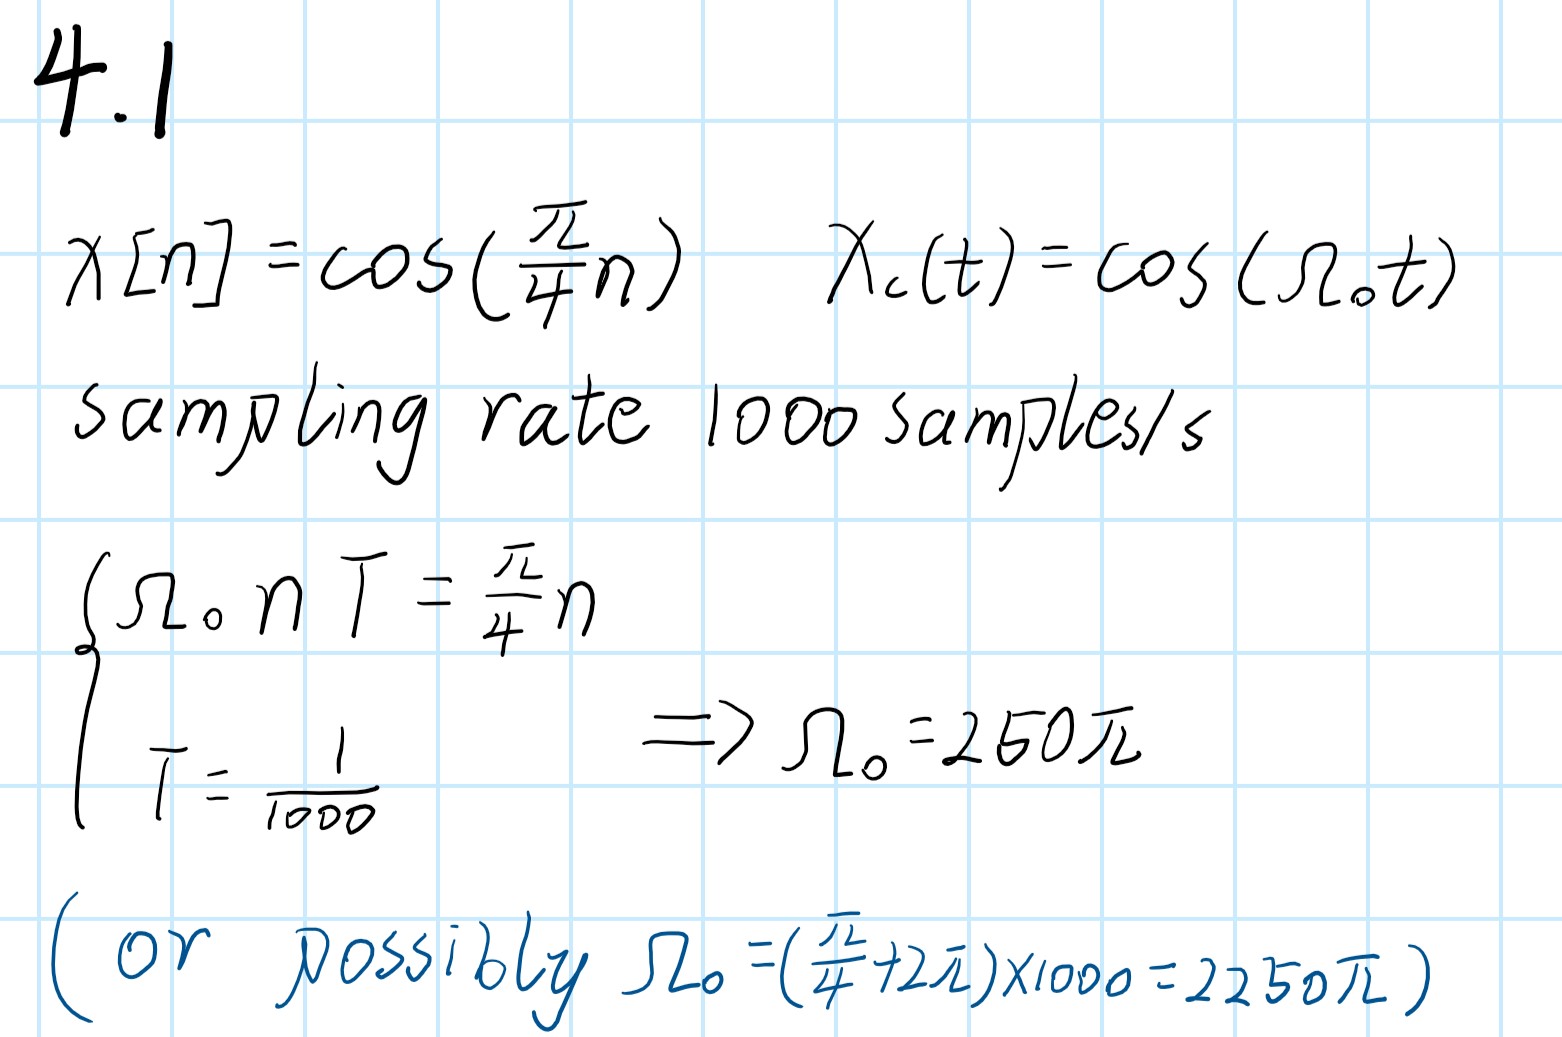 4.1
x[n] = cos(π/4 n)  x_c(t) = cos(Ω₀t)
sampling rate 1000 samples/s
{ Ω₀ n T = π/4 n
T = 1/1000  ⇒ Ω₀ = 250π
(or possibly Ω₀ = (π/4 + 2π)×1000 = 2250π)